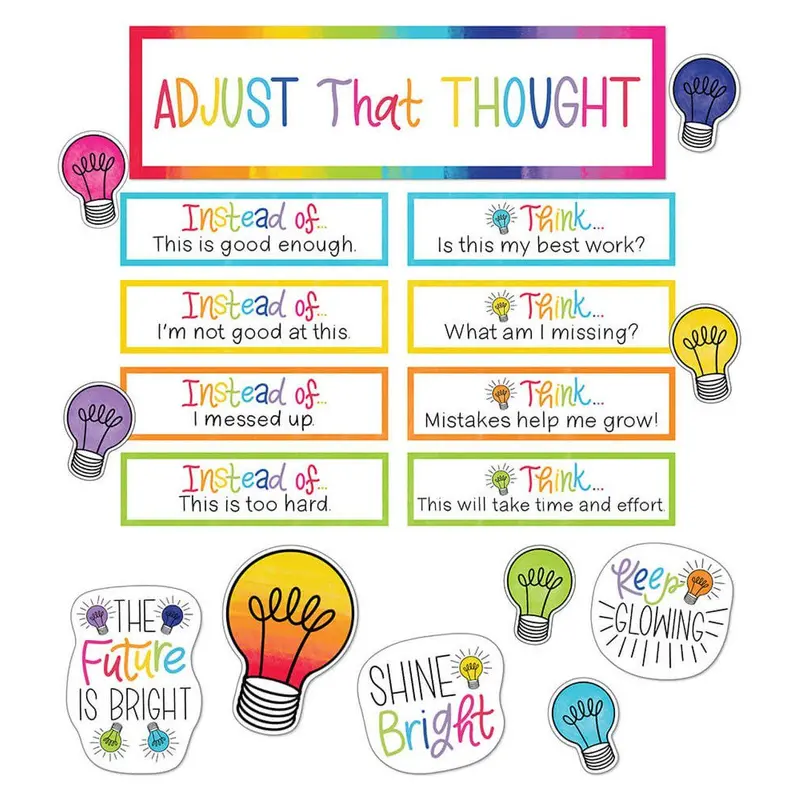 ADJUST That THOUGHT
Instead of...
This is good enough.
Think...
Is this my best work?
Instead of...
I'm not good at this.
Think...
What am I missing?
Instead of...
I messed up.
Think...
Mistakes help me grow!
Instead of...
This is too hard.
Think...
This will take time and effort.
THE
Future
IS BRIGHT
SHINE
Bright
Keep
GLOWING